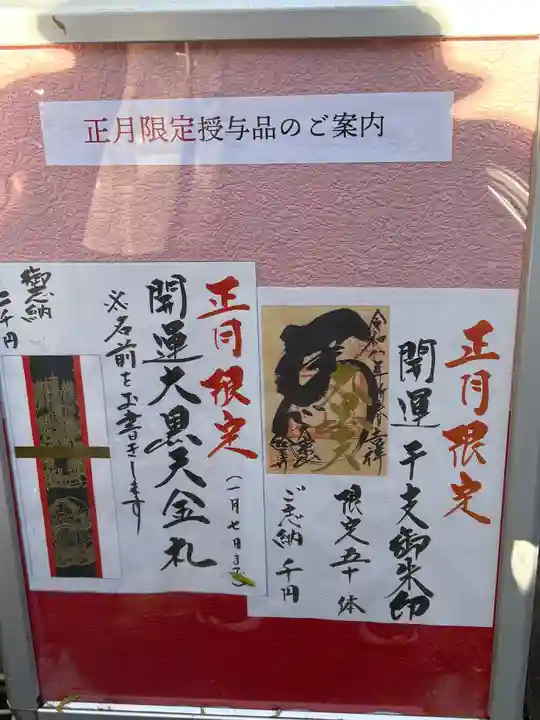 正月限定授与品のご案内
正月限定
開運干支御朱印
限定五十体
ご志納 千円
令和八年
正月限定
(一月七日まで)
開運大黒天金札
※名前をお書きします
御志納
二千円